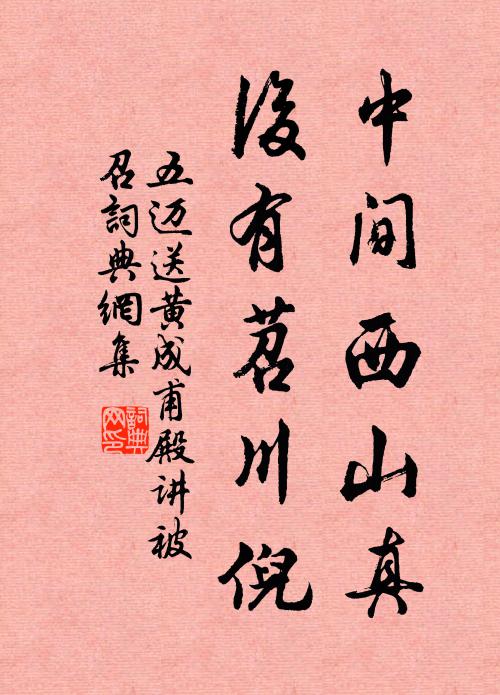 中间西山真
後有苕川倪
五迈送黄成甫殿讲被
召詞典網集
詞典
网印